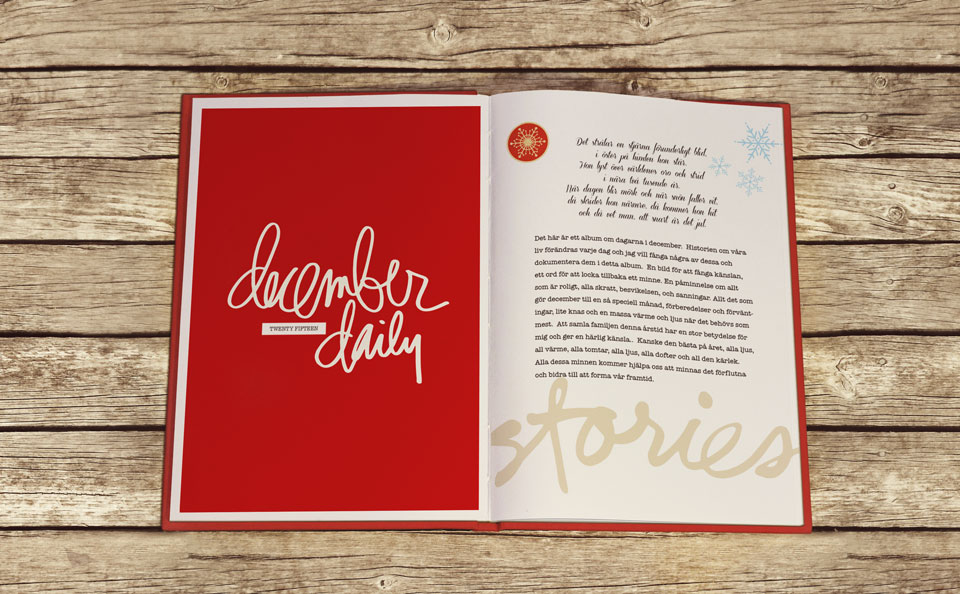 december
TWENTY FIFTEEN
daily
Det strålar en stjärna förunderligt blid,
i öster på himlen hon står.
Hon lyst över världenes oro och strid
i nära två tusende år.
När dagen blir mörk och när snön faller vit,
då skrider hon närmre, då kommer hon hit
och då vet man, att snart är det jul.
Det här är ett album om dagarna i december. Historien om våra
liv förändras varje dag och jag vill fånga några av dessa och
dokumentera dem i detta album. En bild för att fånga känslan,
ett ord för att locka tillbaka ett minne. En påminnelse om allt
som är roligt, alla skratt, besvikelsen, och sanningar. Allt det som
gör december till en så speciell månad, förberedelser och förvänt-
ingar, lite knas och en massa värme och ljus när det behövs som
mest. Att samla familjen denna årstid har en stor betydelse för
mig och ger en härlig känsla.. Kanske den bästa på året, alla ljus,
all värme, alla tomtar, alla ljus, alla dofter och all den kärlek.
Alla dessa minnen kommer hjälpa oss att minnas det förflutna
och bidra till att forma vår framtid.
stories